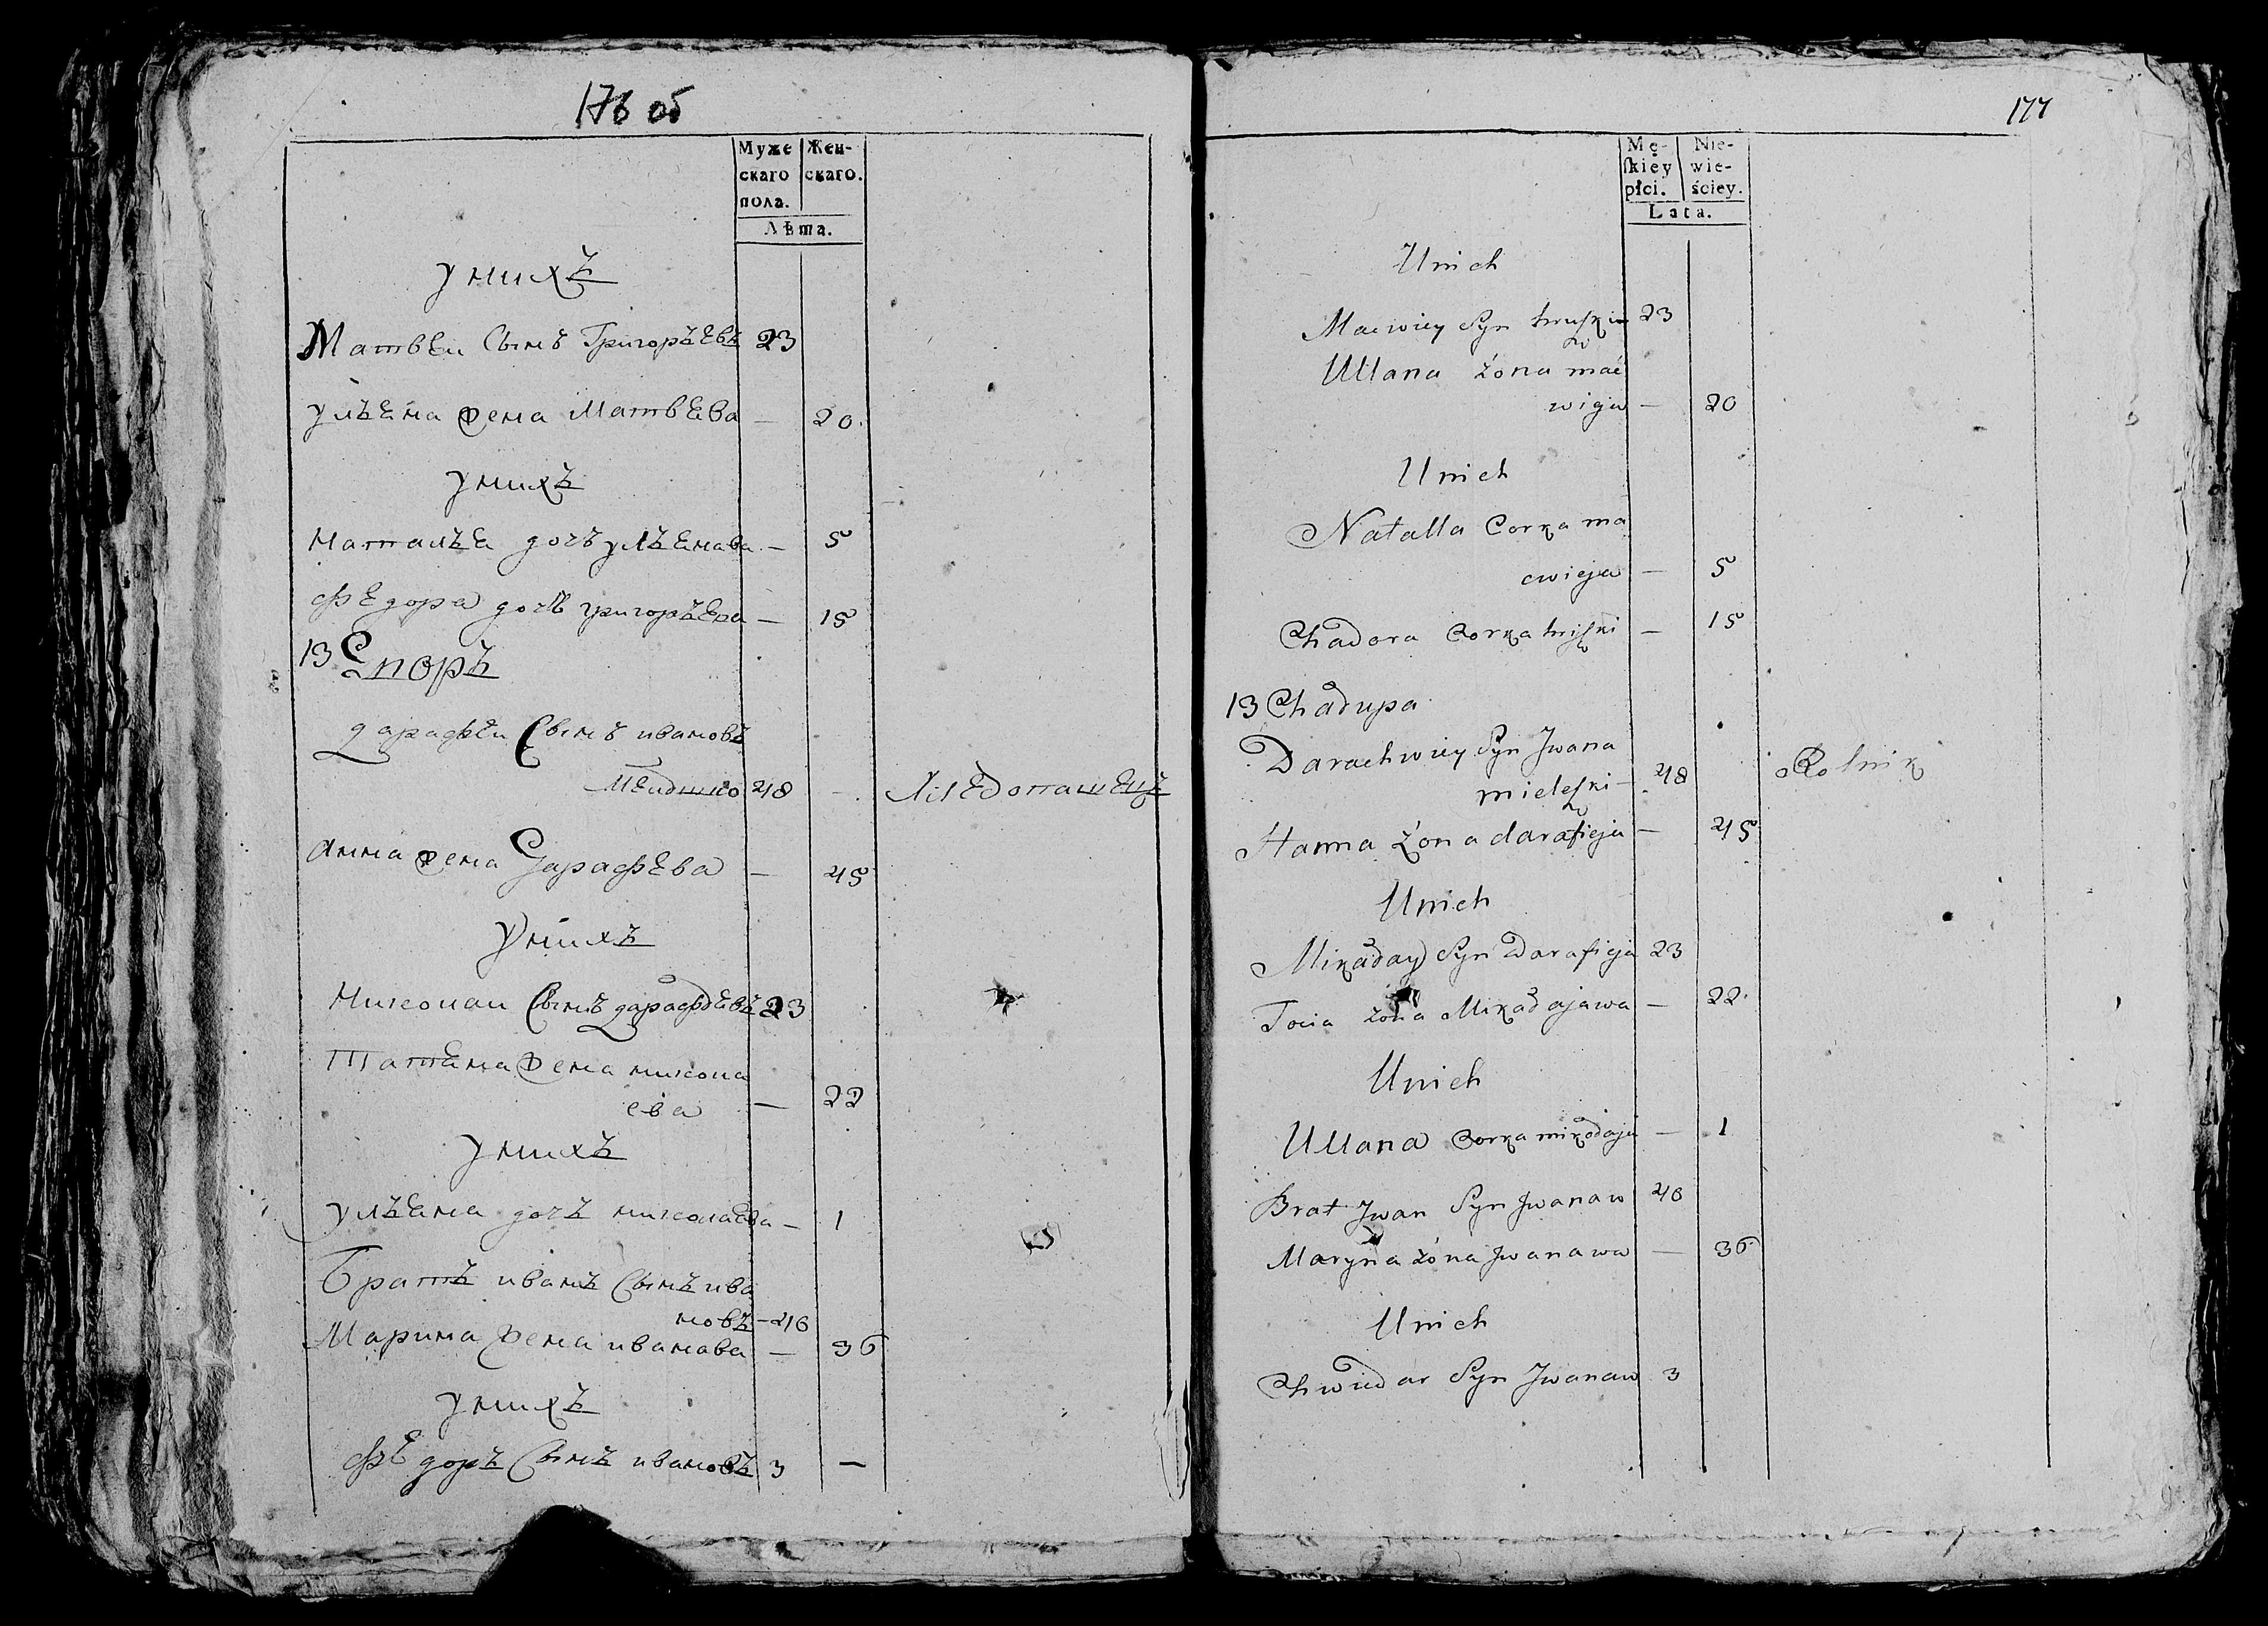 176 об
Муже
скаго
пола.
Жен-
скаго.
Лѣта.
у нихъ
Матвеи Сынъ Григорьевъ 23
ульена жена Матвеева — 20
у нихъ
Наталье дочь ульенава — 5
Федора дочь григорьева — 15
13
дарафеи Сынъ ивановъ
48 — Хлебопашецъ
Анна жена Дарафева — 45
У нихъ
Николаи Сынъ дарафеевъ 23
Татяна жена никола
ева — 22
у нихъ
ульяна дочь николаева — 1
Братъ иванъ Сынъ ива
новъ — 40
Марина жена иванава — 36
у нихъ
Федоръ Сынъ ивановъ 3 —
177
Mę-
skiey
płci.
Nie-
wie-
ściey.
Lata.
U nich
Maćwiey Syn hryszkin 23
Ullana żona mać
wieja — 20
U nich
Natalla Corka ma
cwieja — 5
Chadora Corka hryszki — 15
13 Chadupa
Darachwiey Syn Jwana
48 Rolnik
Hanna żona darafieja — 45
U nich
Mikałay Syn Darafieja 23
żona Mikałajawa — 22
U nich
Ullana Corka mikołaja — 1
Brat Jwan Syn Jwanaw 40
Maryna żona Jwanawa — 36
U nich
Chwiedar Syn Jwanaw 3